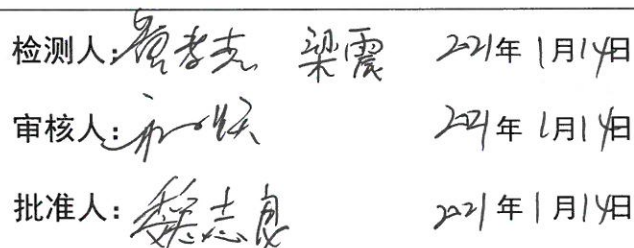 检测人: 梁震 2021年1月14日
审核人: 2021年1月14日
批准人: 魏志良 2021年1月14日